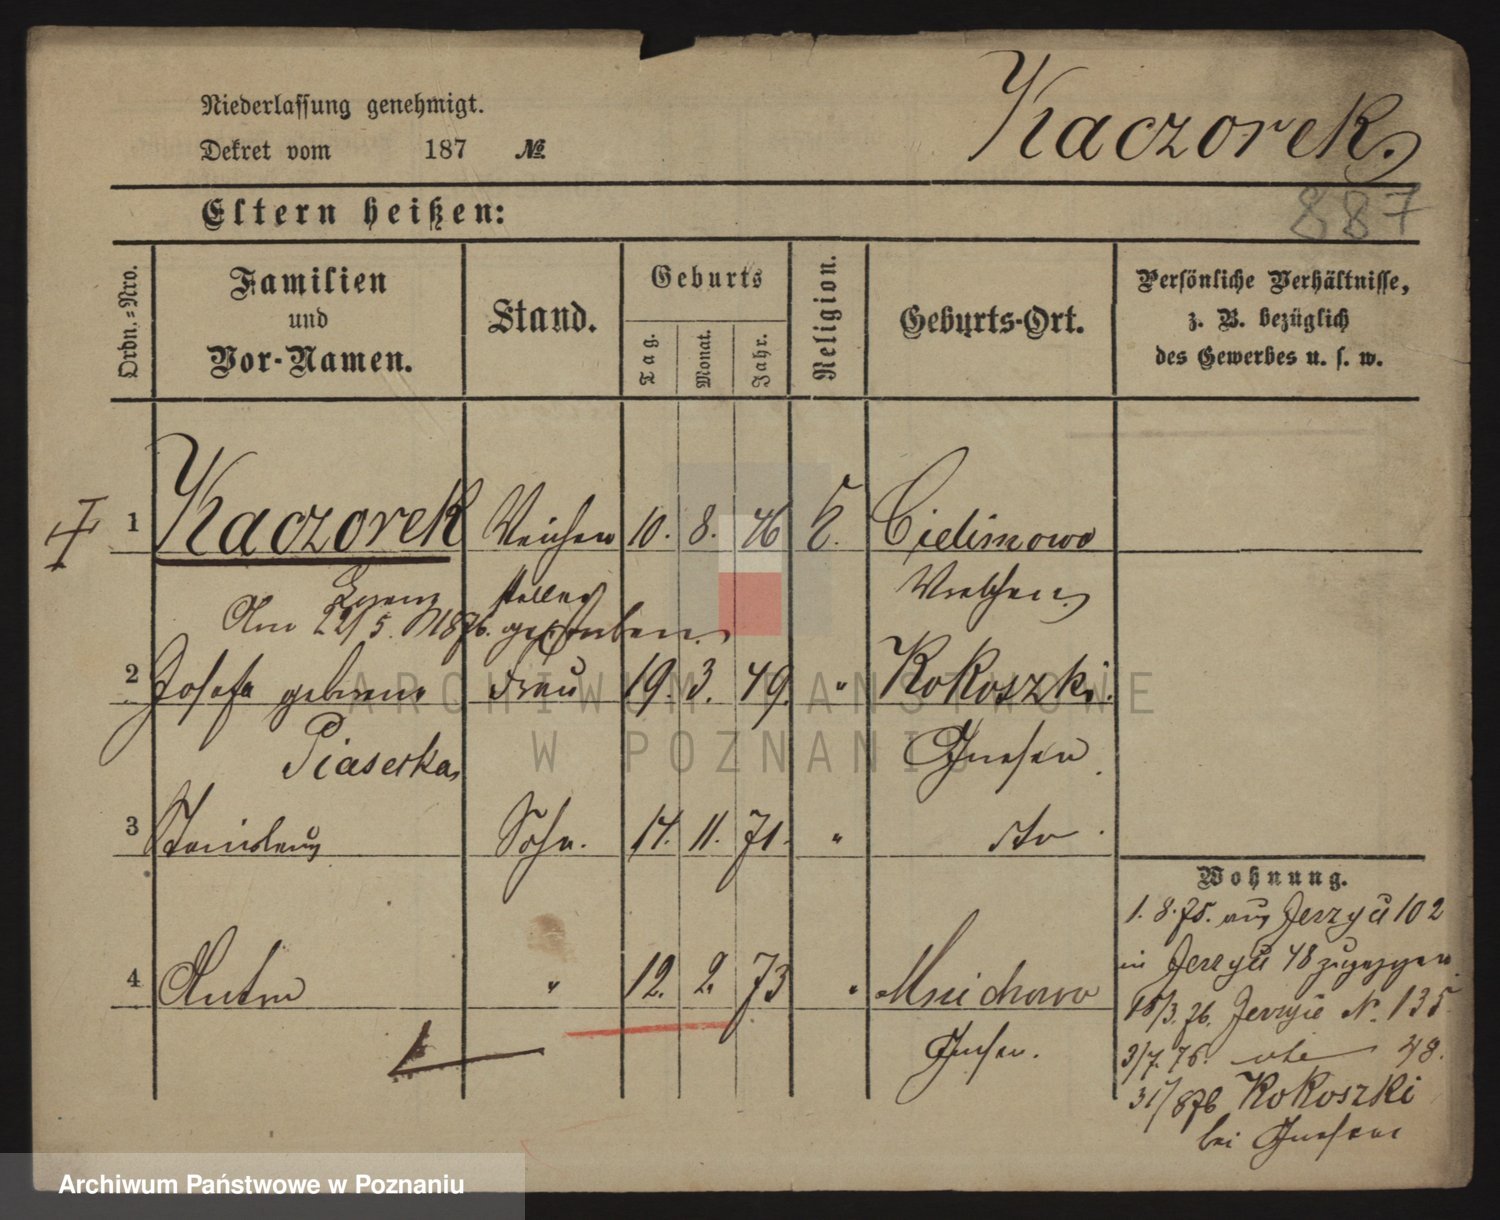 Niederlassung genehmigt.
Dekret vom 187 №
Kaczorek.
887
Eltern heißen:
Ordn.=Nro.
Familien
und
Vor-Namen.
Stand.
Geburts
Tag.
Monat.
Jahr.
Religion.
Geburts-Ort.
Persönliche Verhältnisse,
z. B. bezüglich
des Gewerbes u. s. w.
1 Kaczorek Weichen 10. 8. 46 Cielimowo
steller
Am 22/5. 1876. gestorben.
2 Josefa geborene Frau 19. 3. 49. " Kokoszki.
Piaserka Gnesen
3 Stanislaus Sohn. 14. 11. 71. " dto
4 " 12. 2. 73 " Mnichowo
Gnesen.
Wohnung.
1. 8. 75. aus Jerzyce 102
in Jerzyce 48 zugezogen.
18/3. 76. Jerzyce N. 135
3/7. 76. 48.
31/876 Kokoszki
bei Gnesen
ARCHIWUM PAŃSTWOWE
W POZNANIU
Archiwum Państwowe w Poznaniu